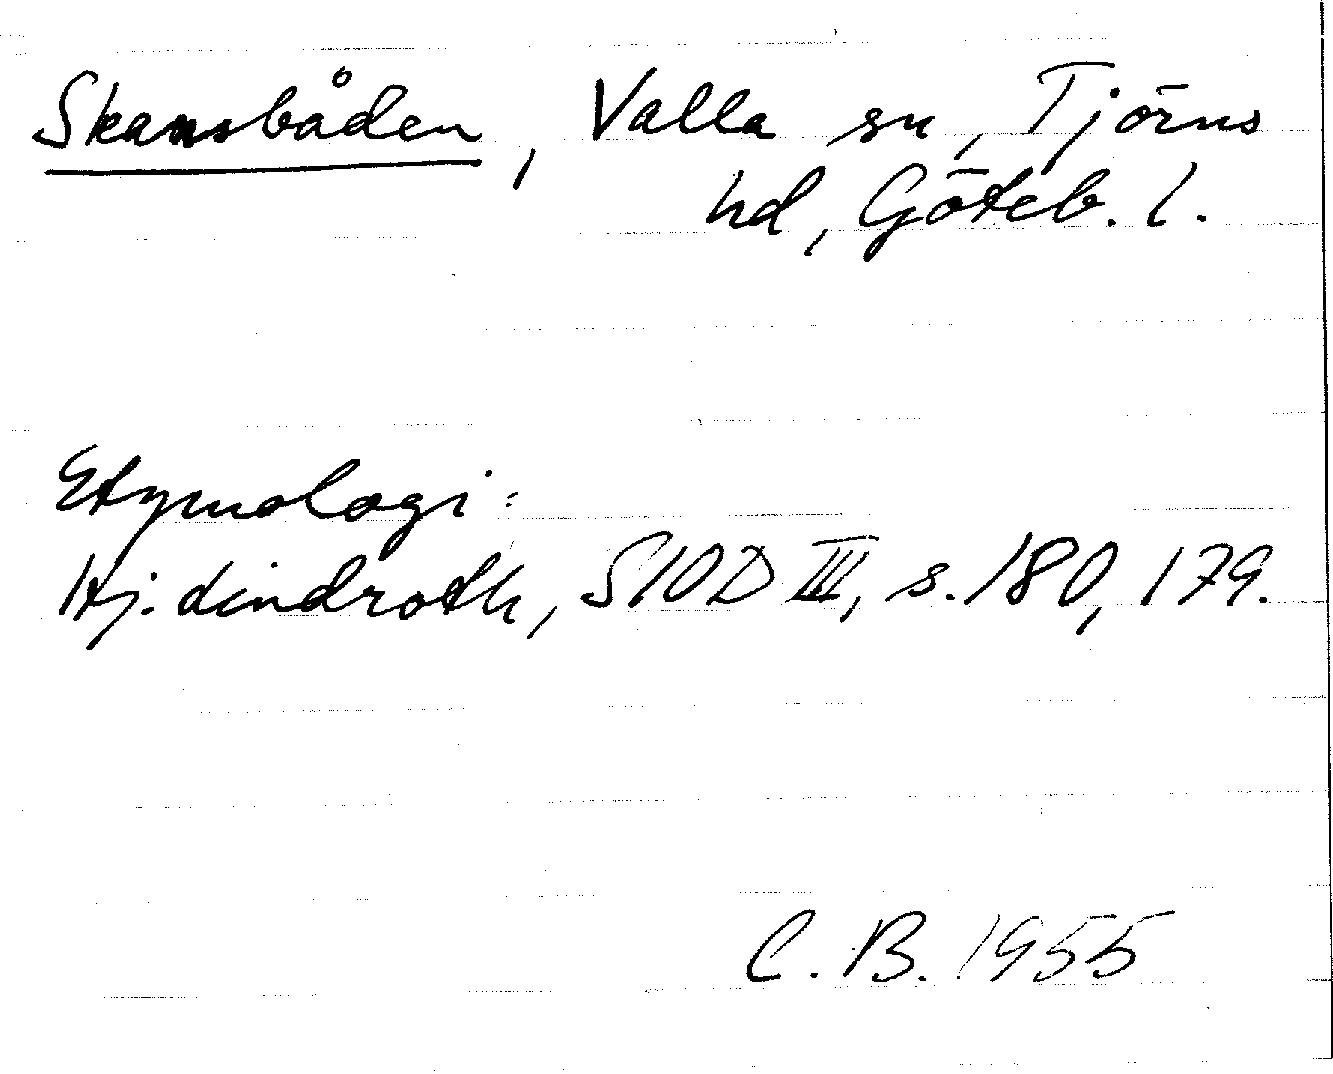 Skansbåden, Valla sn, Tjörns
hd, Göteb. l.
Etymologi:
Hj. Lindroth, SIOD III, s. 180, 179.
C. B. 1955